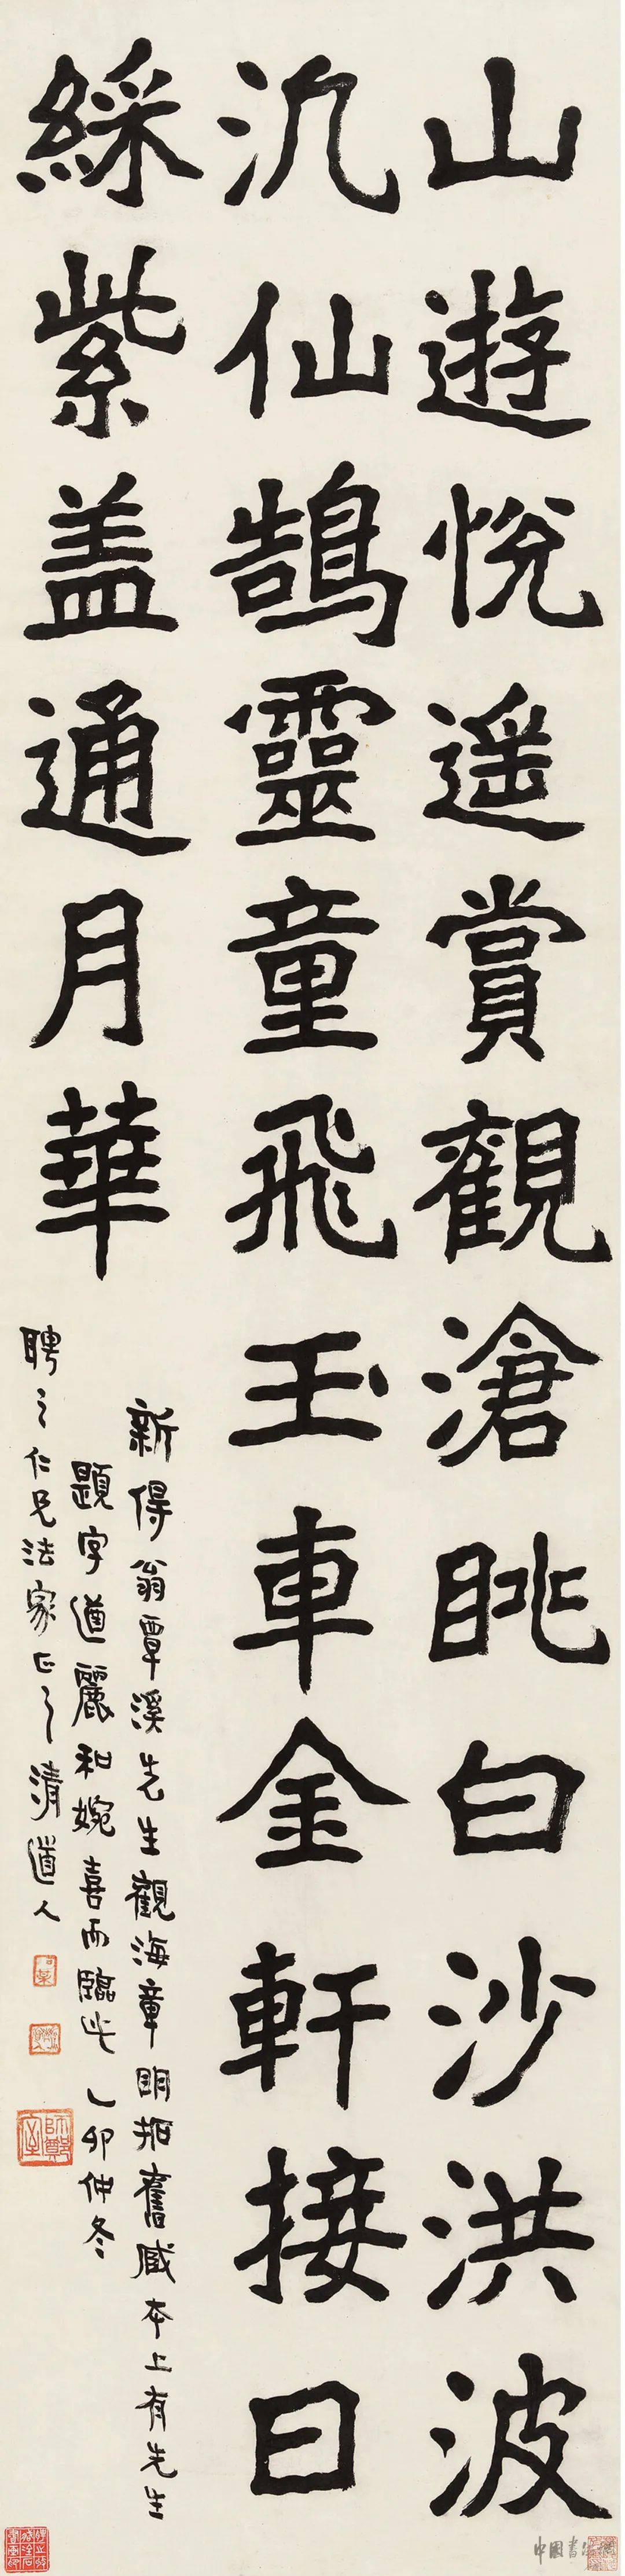 山遊悅遥賞觀滄眺白沙洪波
汎仙鵠靈童飛玉車金軒接日
綵紫盖通月華
新得翁覃溪先生觀海章明拓舊臧本上有先生
題字遒麗和婉喜而臨此乙卯仲冬
聘之仁兄法家正之清道人